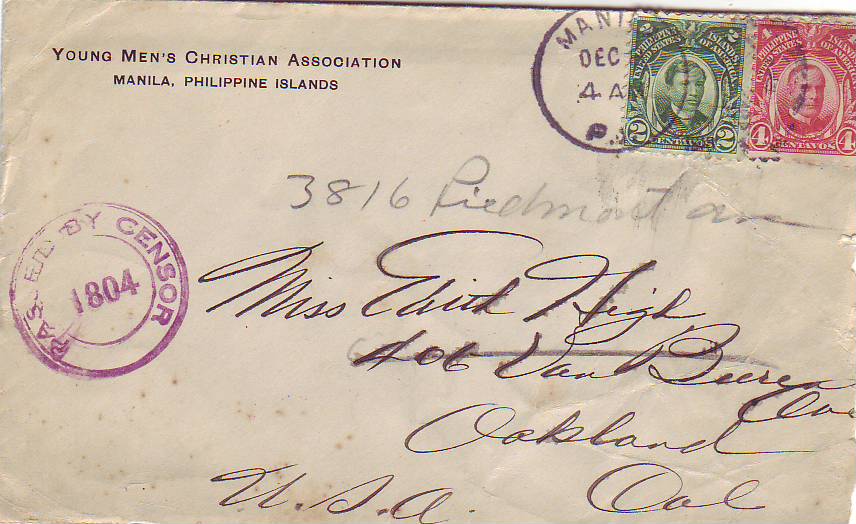 YOUNG MEN'S CHRISTIAN ASSOCIATION
MANILA, PHILIPPINE ISLANDS
MANI
DEC
4 A
P.
PHILIPPINE ISLANDS
UNITED STATES OF AMERICA
2 CENTAVOS 2
PHILIPPINE ISLANDS
UNITED STATES OF AMERICA
4 CENTAVOS 4
3816 Piedmont
PASSED BY CENSOR
1804
Miss Edith High
406 Van Buren
Ave
Oakland
U.S.A. Cal